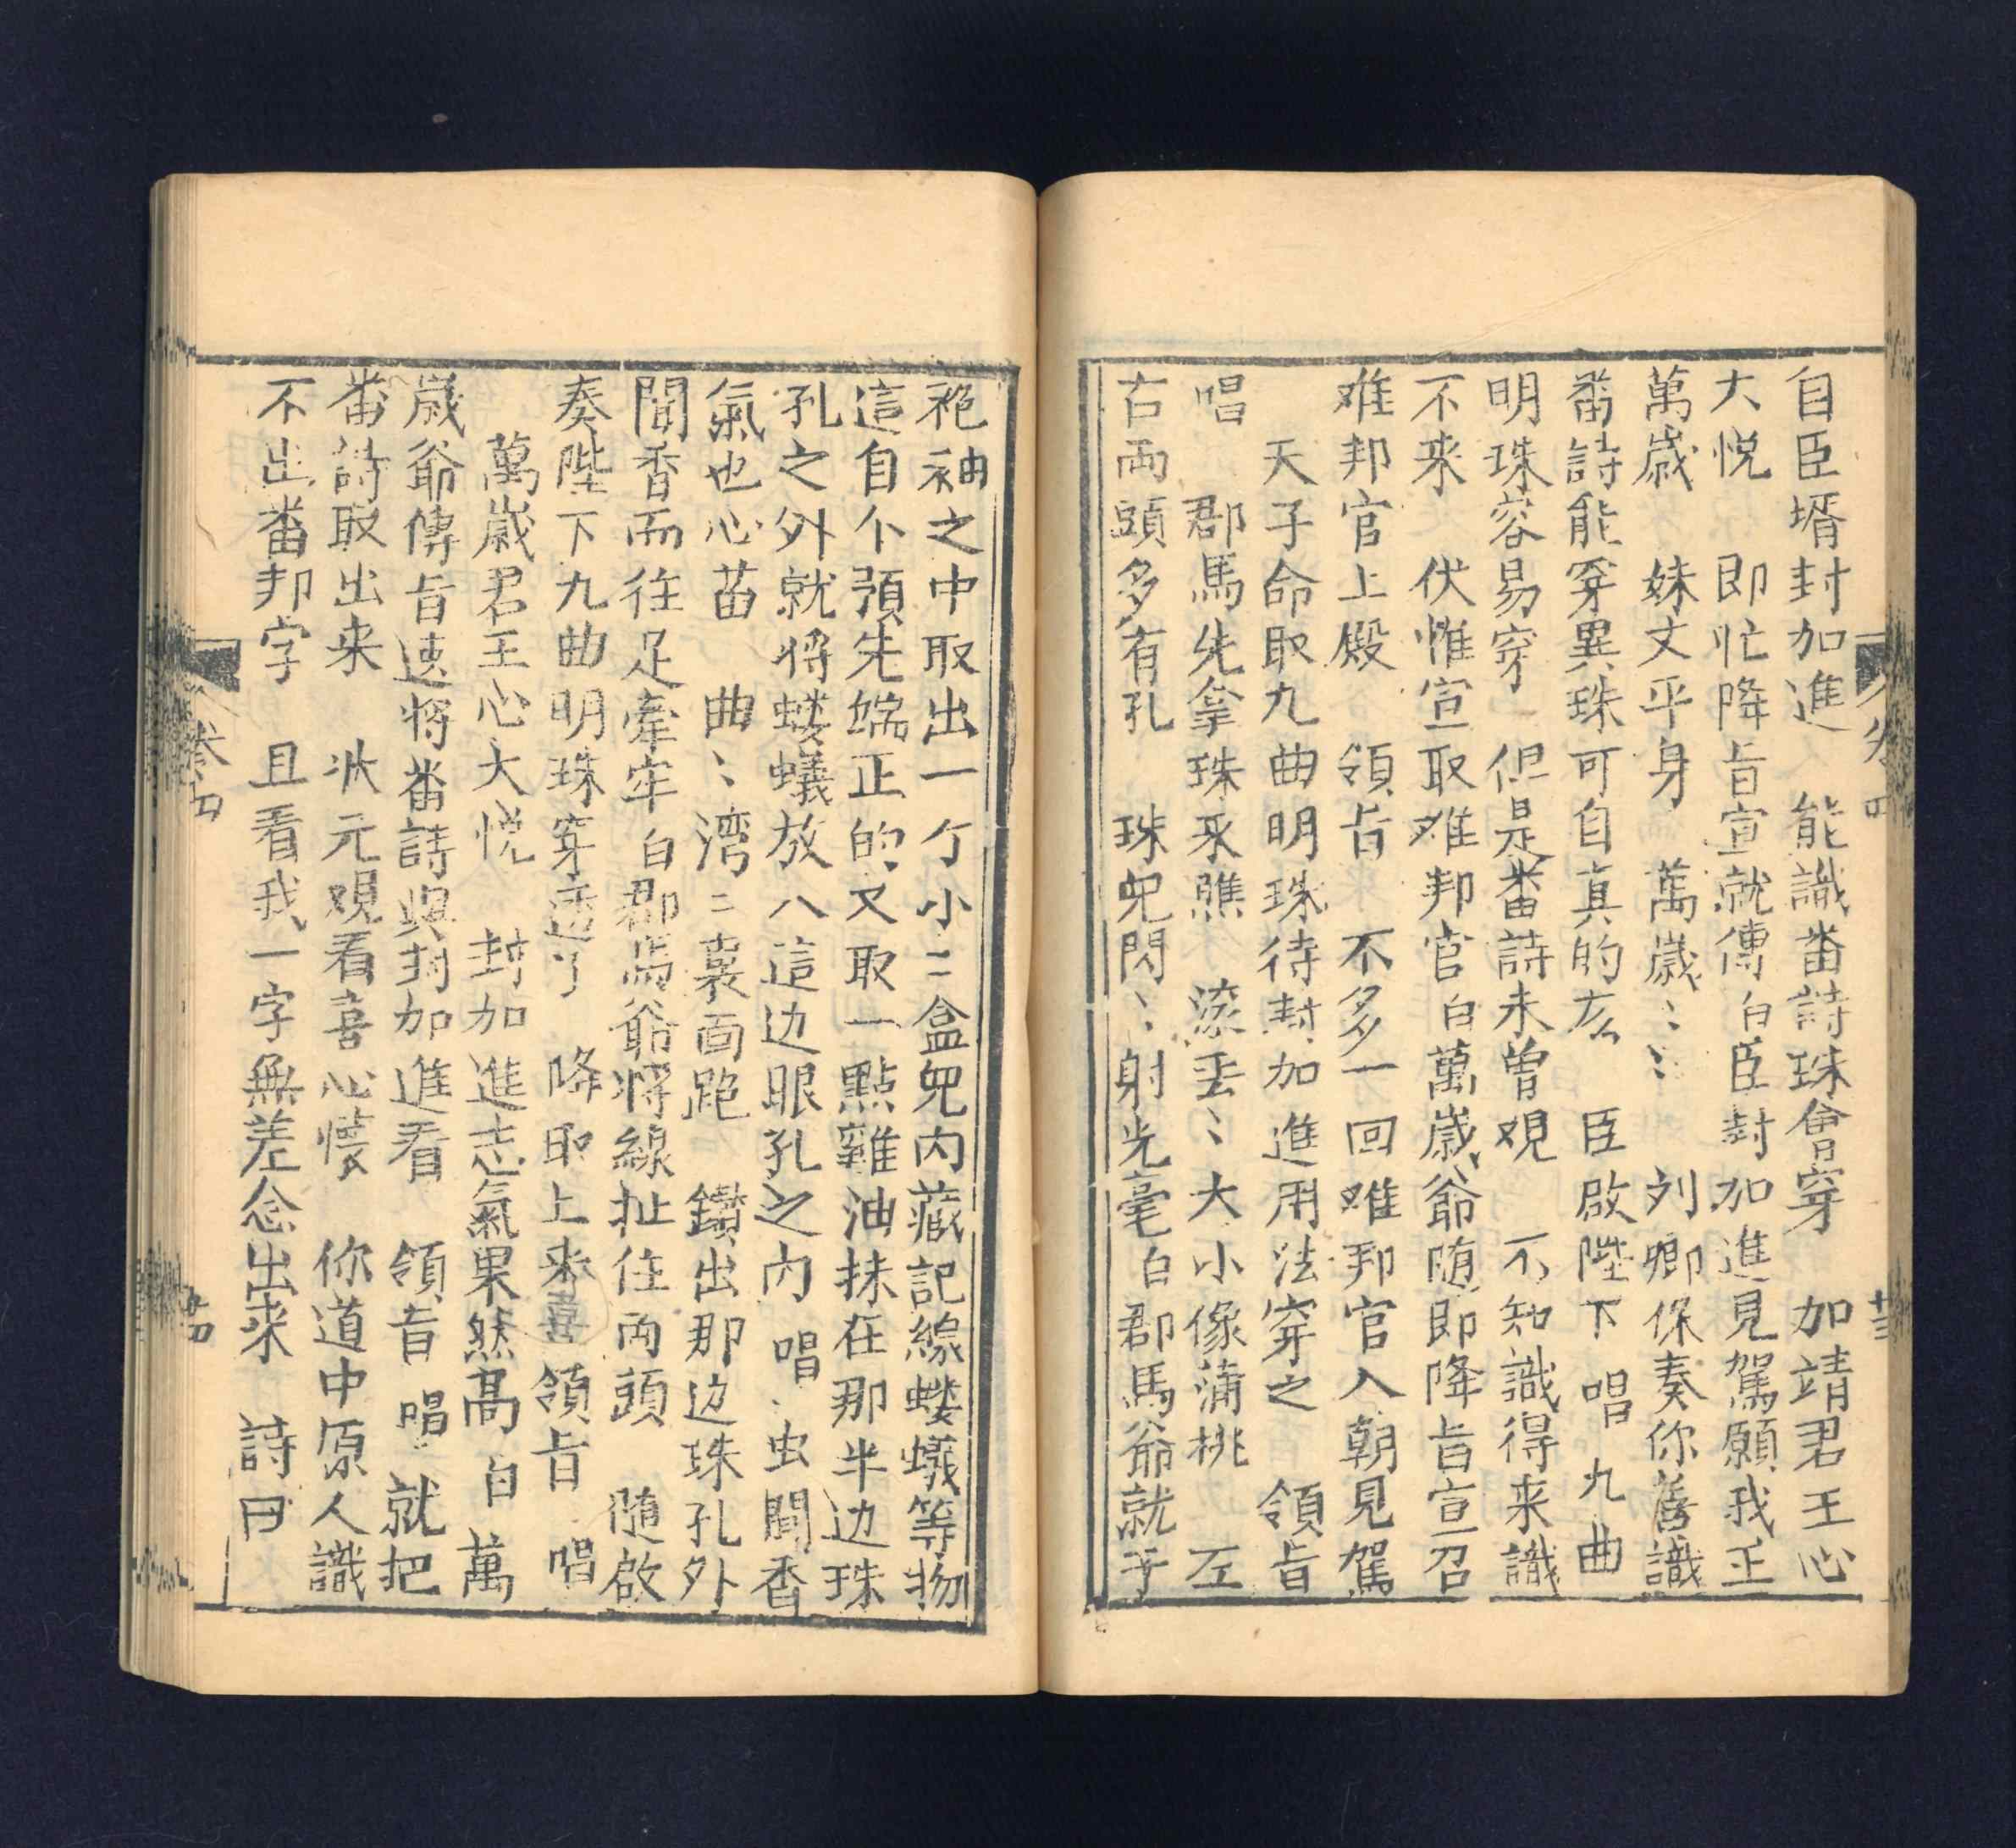 自臣壻封加進　能識畨詩珠會穿　加靖君王心
大悦　即忙降旨宣就傳白臣封加進見駕願我王
萬歳　妹丈平身　萬歳〻〻　刘卿保奏你善識
畨詩能穿異珠可自真的庅　臣啟陛下　唱　九曲
明珠容易穿　但是畨詩未曽观　不知識得来識
不来　伏惟宣取难邦官白萬歳爺随即降旨宣召
难邦官上殿　領旨　不多一回难邦官入朝見駕
天子命取九曲明珠待封加進用法穿之　領旨
唱　郡馬先拿珠来瞧　滚圡〻大小像蒲桃　左
右両頭多有孔　珠兒閃〻射光毫白郡馬爺就于
卷四
袍袖之中取出一个小〻盒兒内藏記線螻蟻等物
這自个預先端正的又取一點雞油抹在那半边珠
孔之外就将螻蟻放八這边眼孔之内　唱　虫聞香
氣也心苗　曲〻湾〻裏面跑　鑚出那边珠孔外
聞香而往足牽牢白郡馬爺将線扯住両頭　随啟
奏陛下九曲明珠穿透了　降即上来喜領旨　唱
萬歳君王心大悦　封加進志氣果然高　白　萬
歳爺傳旨速将畨詩與封加進看　領旨　唱　就把
畨詩取出来　状元观看喜心懐　你道中原人識
不出畨邦字　且看我一字無差念出来　詩曰
卷四